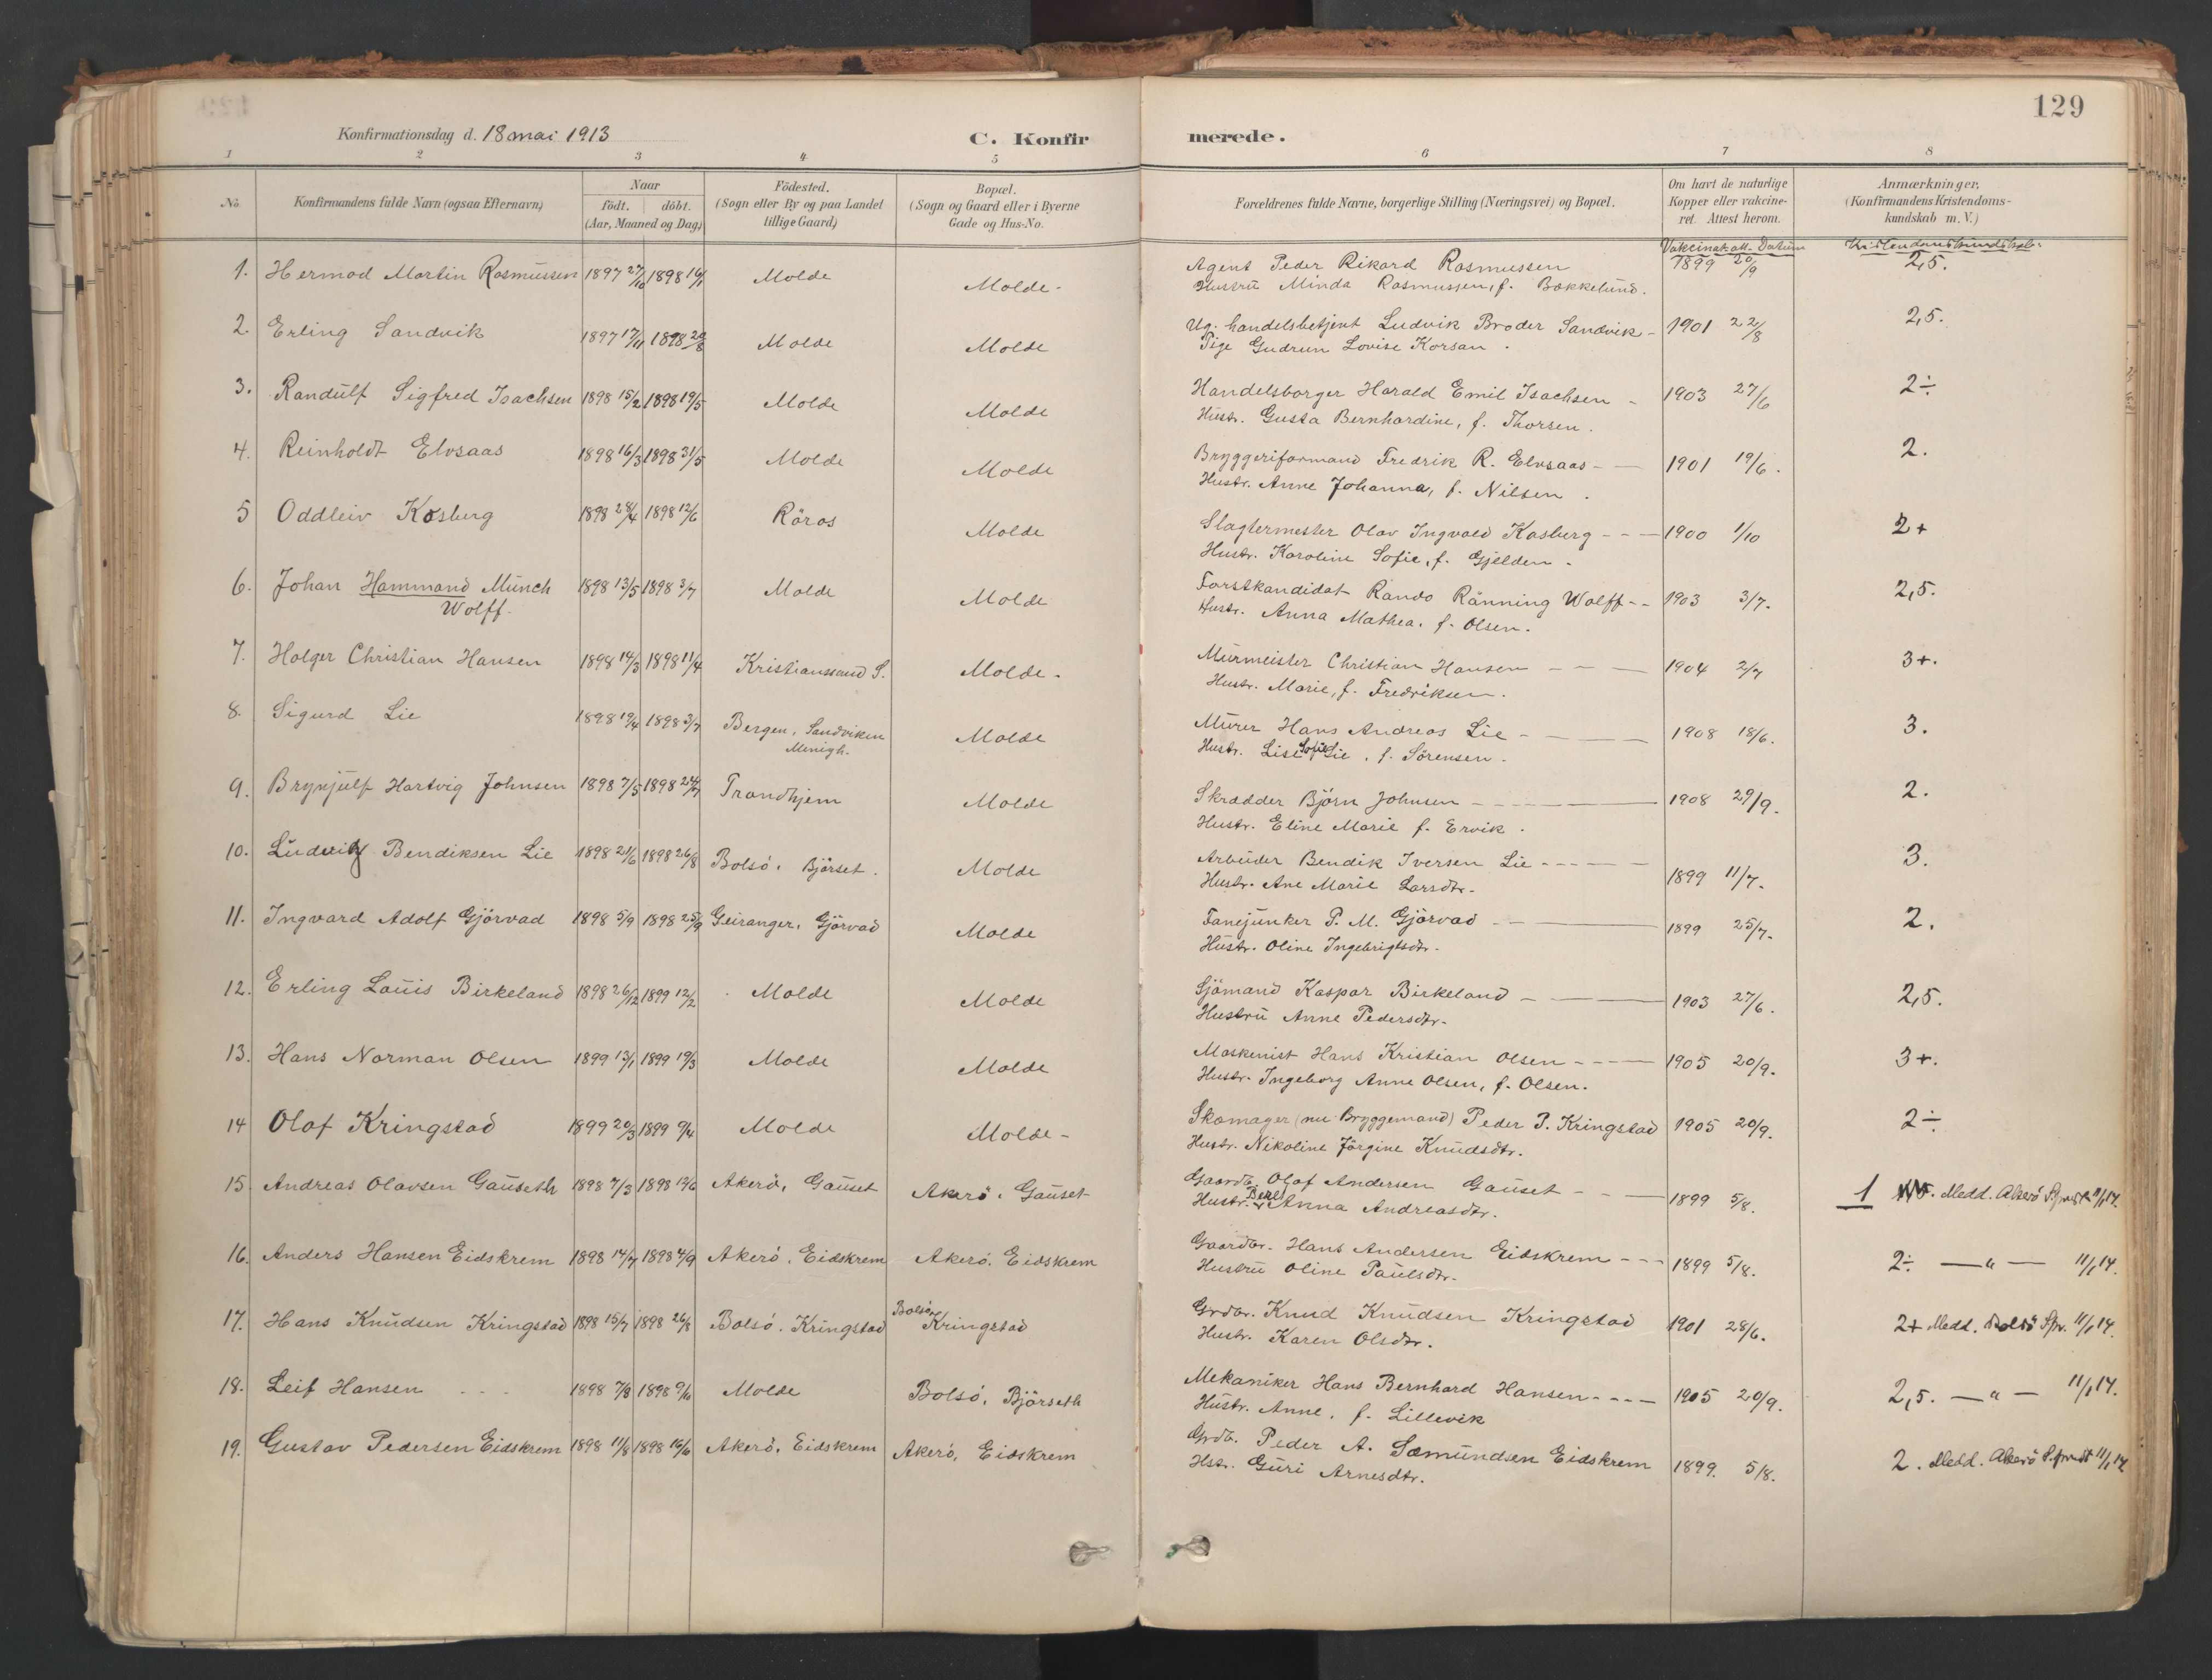 129
Konfirmationsdag d. 18 mai 1913
C. Konfirmerede.
1 2 3 4 5 6 7 8
No. Konfirmandens fulde Navn (ogsaa Efternavn) Naar födt. döbt. (Aar, Maaned og Dag) Födested. (Sogn eller By og paa Landet tillige Gaard) Bopæl. (Sogn og Gaard eller i Byerne Gade og Hus-No. Forældrenes fulde Navne, borgerlige Stilling (Næringsvei) og Bopæl. Om havt de naturlige Kopper eller vakcineret. Attest herom. Anmærkninger, (Konfirmandens Kristendomskundskab m. V.)
Vakcinat. att. Datum Kristendomskundskab.
1. Hermod Martin Rasmussen 1897 27/10 1898 16/1 Molde Molde. Agent Peder Rikard Rasmussen 1899 20/9 2,5.
Hustru Minda Rasmussen, f. Bakkelund.
2. Erling Sandvik 1897 17/11 1898 20/8 Molde Molde Ug. handelsbetjent Ludvik Broder Sandvik - 1901 22/8 2,5.
Pige Gudrun Lovise Korsan.
3. Randulf Sigfred Isachsen 1898 15/2 1898 19/5 Molde Molde Handelsborger Harald Emil Isachsen - 1903 27/6 2÷
Hustr. Gusta Bernhardine, f. Thorsen.
4. Reinholdt Elvsaas 1898 16/3 1898 31/5 Molde Molde Bryggeriformand Fredrik R. Elvsaas - 1901 19/6. 2.
Hustr. Anne Johanna, f. Nilsen.
5 Oddleiv Kosberg 1898 28/4 1898 12/6 Röros Molde Slagtermester Olav Ingvald Kosberg - - - 1900 1/10 2+
Hustr. Karoline Sofie, f. Gjelden.
6. Johan Hammand Münch Wolff. 1898 13/5 1898 3/7 Molde Molde Forstkandidat Rando Ränning Wolff - - 1903 3/7. 2,5.
Hustr. Anna Mathea. f. Olsen.
7. Holger Christian Hansen 1898 14/3 1898 11/4 Kristianssand S. Molde. Murmeister Christian Hansen - - - 1904 2/7 3+.
Hustr. Marie, f. Fredriksen.
8. Sigurd Lie 1898 19/4 1898 3/7 Bergen, Sandviken Menigh. Molde Murer Hans Andreas Lie - - 1908 18/6. 3.
Hustr. Lise Sofie Lie, f. Sörensen.
9. Brynjulf Hartvig Johnsen 1898 7/5 1898 24/7 Trondhjem Molde Skrædder Björn Johnsen - - - 1908 29/9. 2.
Hustr. Eline Marie f. Ervik.
10. Ludvig Bendiksen Lie 1898 21/6 1898 26/8 Bolsö. Bjørset. Molde Arbeider Bendik Iversen Lie - - - 1899 11/7. 3.
Hustr. Ane Marie Larsdtr.
11. Ingvard Adolf Gjörvad 1898 5/9 1898 25/9 Geiranger, Gjörvad Molde Fanejunker P. M. Gjörvad - 1899 25/7. 2.
Hustr. Oline Ingebrigtsdtr.
12. Erling Louis Birkeland 1898 26/12 1899 12/2 Molde Molde Sjömand Kaspar Birkeland - 1903 27/6. 2,5.
Hustru Anne Pedersdtr.
13. Hans Norman Olsen 1899 13/1 1899 19/3 Molde Molde Maskenist Hans Kristian Olsen - - - 1905 20/9. 3+.
Hustr. Ingeborg Anne Olsen, f. Olsen.
14 Olaf Kringstad 1899 20/3 1899 9/4 Molde Molde - Skomager (nu Bryggemand) Peder P. Kringstad 1905 20/9. 2÷
Hustr. Nikoline Jörgine Knudsdtr.
15. Andreas Olavsen Gauseth 1898 7/3 1898 19/6 Akerö, Gauset Akerö, Gauset Gaardbr. Olaf Andersen Gauset - - 1899 5/8. 1 Medd. Akerö S.prest 11/1 14.
Hustr. Berel Anna Andreasdtr.
16. Anders Hansen Eidskrem 1898 14/7 1898 4/9 Akerö, Eidskrem Akerö. Eidskrem Gaardbr. Hans Andersen Eidskrem - - - 1899 5/8. 2÷ — " — 11/1 14.
Hustru Oline Paulsdtr.
17. Hans Knudsen Kringstad 1898 15/7 1898 26/8 Bolsö. Kringstad Bolsö Kringstad Grdbr. Knud Knudsen Kringstad 1901 28/6. 2+ Medd. Bolsö Spr. 11/1 14.
Hustr. Karen Olsdtr.
18. Leif Hansen 1898 7/8 1898 9/10 Molde Bolsö, Björseth Mekaniker Hans Bernhard Hansen - - - 1905 20/9. 2,5. — " — 11/1 14.
Hustr. Anne, f. Lillevik
19. Gustav Pedersen Eidskrem 1898 11/8 1898 16/10 Akerö, Eidskrem Akerö, Eidskrem Grdb. Peder A. Sæmundsen Eidskrem 1899. 5/8. 2. Medd. Akerö S.prest 11/1 14
Hstr. Guri Arnesdtr.